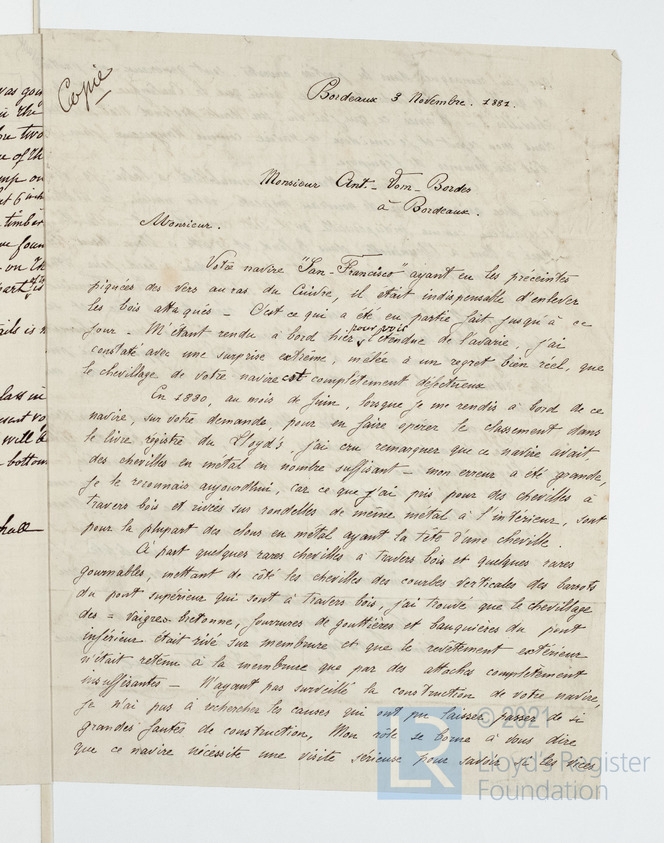 Copie
Bordeaux 3 Novembre. 1881.
Monsieur Ant- Dom- Bordes
à Bordeaux.
Monsieur.
Votre navire "San-Francisco" ayant eu les préceintes
piquées des vers au ras du Cuivre, il était indispensable d'enlever
les bois attaqués - C'est ce qui a été en partie fait jusqu'à ce
jour - M'étant rendu à bord hier pour voir l'étendue de l'avarie, j'ai
constaté avec une surprise extrême, mêlée à un regret bien réel, que
le chevillage de votre navire est complètement défectueux
En 1880, au mois de Juin, lorsque je me rendis à bord de ce
navire, sur votre demande, pour en faire opérer le classement dans
le livre registre du Lloyd's, j'ai cru remarquer que ce navire avait
des chevilles en métal en nombre suffisant - mon erreur a été grande,
je le reconnais aujourd'hui, car ce que j'ai pris pour des chevilles à
travers bois et rivées sur rondelles de même métal à l'intérieur, sont
pour la plupart des clous en métal ayant la tête d'une cheville.
À part quelques rares chevilles à travers bois et quelques rares
gournables, mettant de côté les chevilles des courbes verticales des barrots
du pont supérieur qui sont à travers bois, j'ai trouvé que le chevillage
des = vaigres bretonne, fourrures de gouttières et bauquières du pont
inférieur était rivé sur membrure et que le revêtement extérieur
n'était retenu à la membrure que par des attaches complètement
insuffisantes - N'ayant pas surveillé la construction de votre navire,
je n'ai pas à rechercher les causes qui ont pu laisser passer de si
grandes fautes de construction, Mon rôle se borne à vous dire
que ce navire nécessite une visite sérieuse pour savoir si les
was
in the
two
of the
on
timber
foun
on th
part
is
class in
will
bottom
hall
© 2021
LR
Lloyd's Register
Foundation